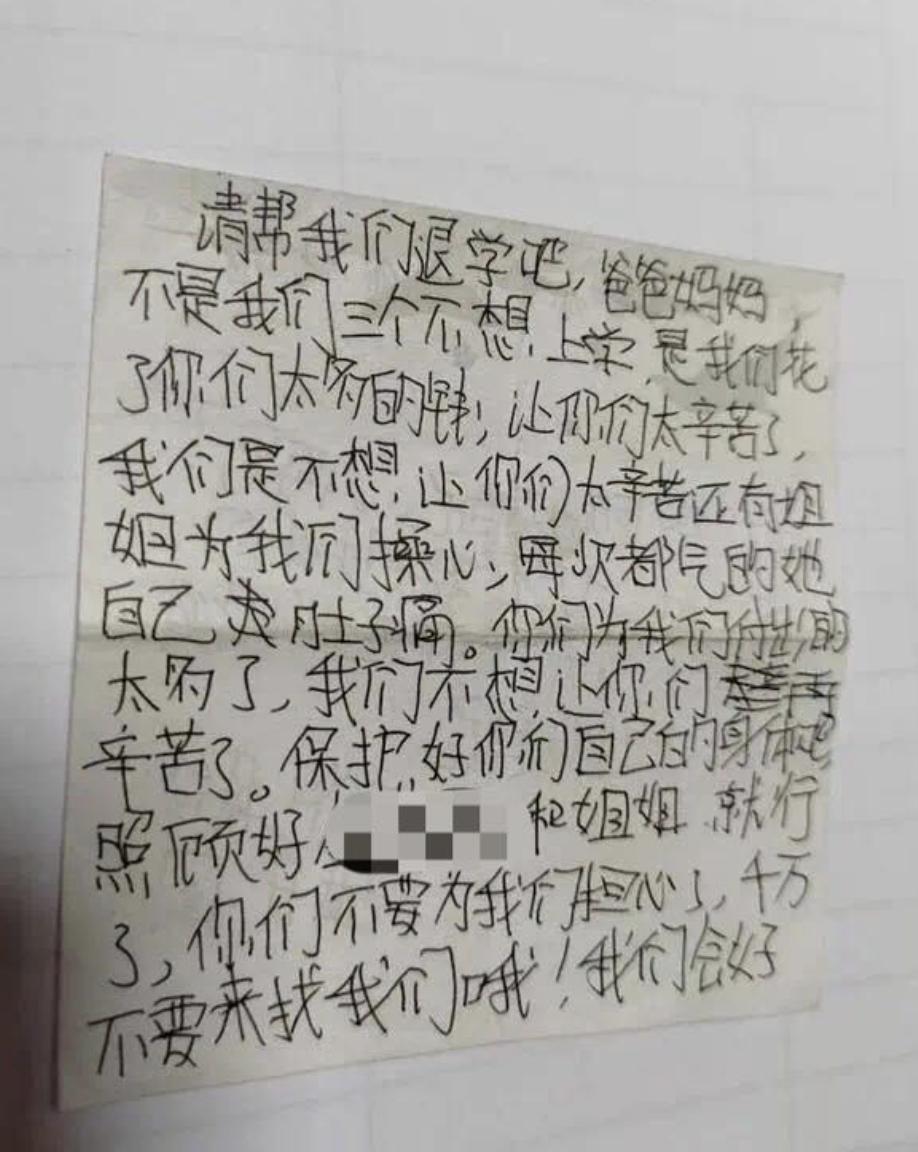 请帮我们退学吧,爸爸妈妈,
不是我们三个不想上学,是我们花
了你们太多的钱,让你们太辛苦了,
我们是不想让你们太辛苦还有姐
姐为我们操心,每次都气的她
自己 肚子痛。你们为我们付出的
太多了,我们不想让你们
辛苦了。保护好你们自己的身体吧,
照顾好 和姐姐就行
了,你们不要为我们担心了,千万
不要来找我们哦!我们会好